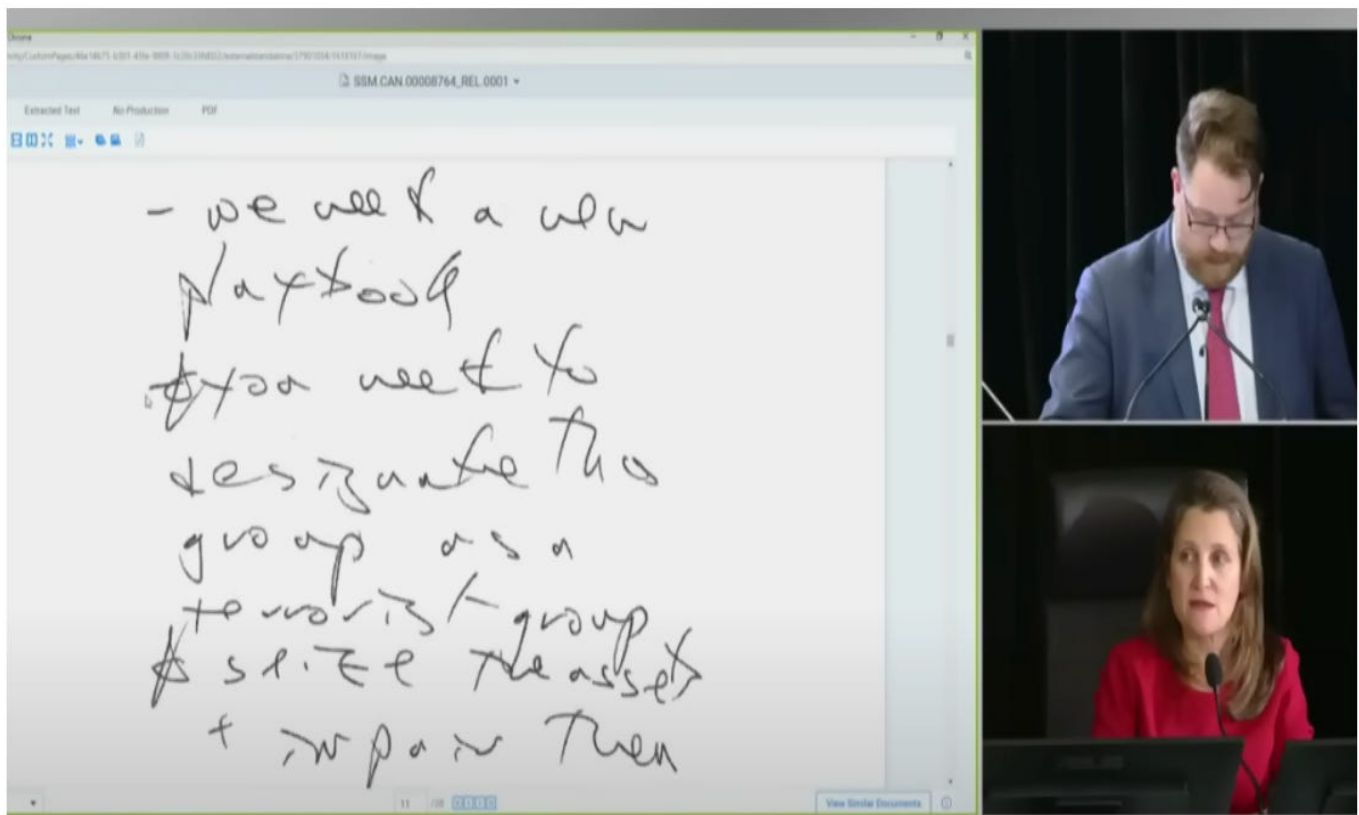 SSM.CAN.00008764_REL.0001
Extracted Text No Production PDF
- we need a new
Playbook
you need to
designate this
group as a
terrorist group
seize the assets
+ impair them
11 /38
View Similar Documents